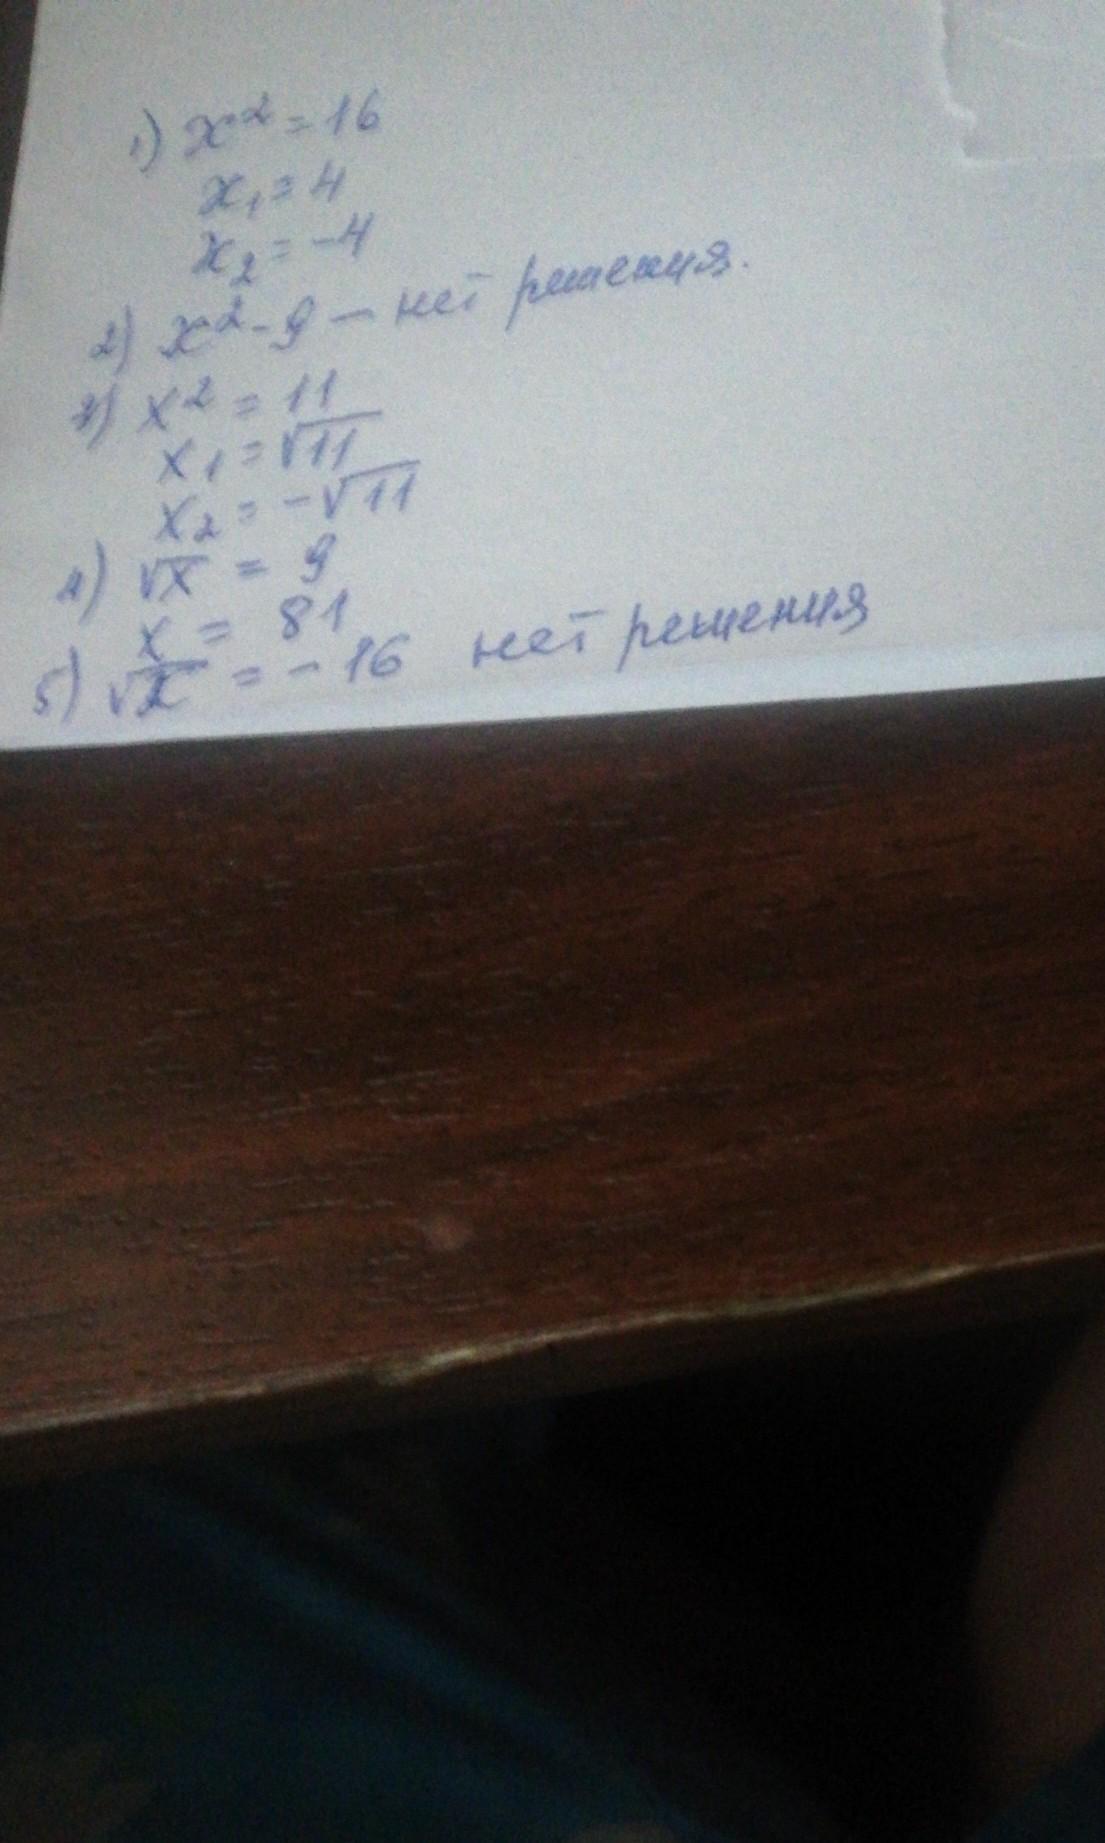 1) x² = 16
x₁ = 4
x₂ = -4
2) x² - 9 — нет решения.
3) x² = 11
x₁ = √11
x₂ = -√11
4) √x = 9
x = 81
5) √x = - 16 нет решения